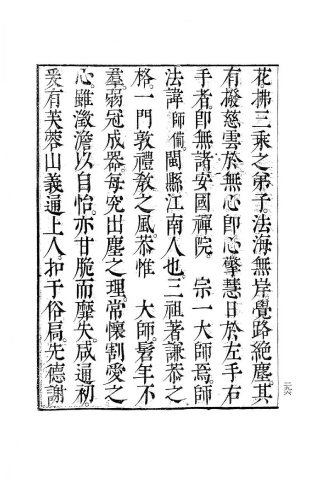 花拂三乘之弟子法海無岸覺路絶塵其
有襏慈雲於無心即心擎慧日於左手右
手者即無諸安國禪院 宗一大師焉師
法諱師備閩縣江南人也三祖著謙恭之
格一門敦禮教之風恭惟 大師髫年不
羣弱冠成器每究出塵之理常懷割愛之
心雖澂澹以自怡亦甘脆而靡失咸通初
爰有芙蓉山義通上人扣于俗局先德謝
二九六